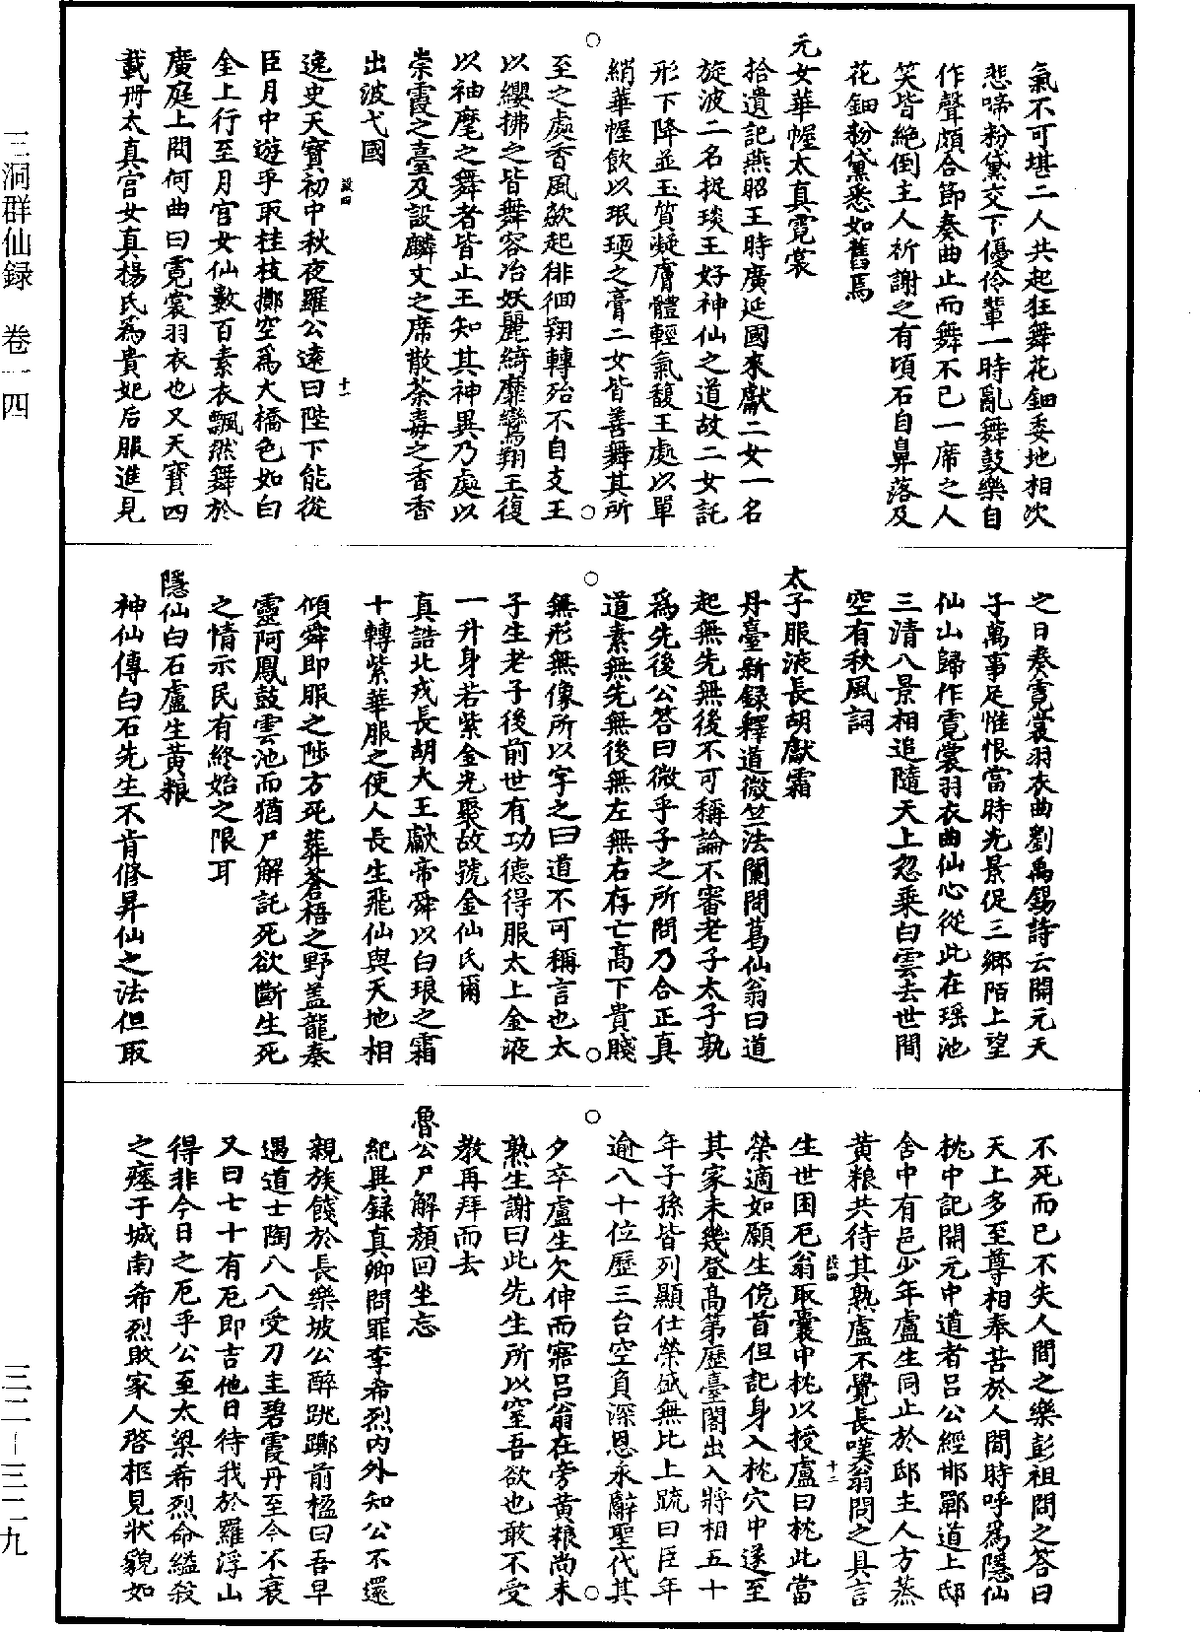 氣不可堪二人共起狂舞花鈿委地相次
悲啼粉黛交下優伶輩一時亂舞鼓樂自
作聲頗合節奏曲止而舞不已一席之人
笑皆絕倒主人祈謝之有頃石自鼻落及
花鈿粉黛悉如舊焉
元女華幄太真霓裳
拾遺記燕昭王時廣延國來獻二女一名
旋波二名捉琰王好神仙之道故二女託
形下降並玉質凝膚體輕氣馥王處以單
綃華幄飲以珉瑌之膏二女皆善舞其所
至之處香風歘起徘徊翔轉殆不自支王
以纓拂之皆舞容冶妖麗綺靡鸞翔王復
以袖麾之舞者皆止王知其神異乃處以
崇霞之臺及設麟文之席散荃毒之香香
出波弋國
逸史天寶初中秋夜羅公遠曰陛下能從
臣月中遊乎取桂枝擲空爲大橋色如白
金上行至月宮女仙數百素衣飄然舞於
廣庭上問何曲曰霓裳羽衣也又天寶四
載冊太真宮女真楊氏爲貴妃后服進見
之日奏霓裳羽衣曲劉禹錫詩云開元天
子萬事足惟恨當時光景促三鄉陌上望
仙山歸作霓裳羽衣曲仙心從此在瑤池
三清八景相追隨天上忽乘白雲去世間
空有秋風詞
太子服液長胡獻霜
丹臺新録釋道微竺法闌問葛仙翁曰道
起無先無後不可稱論不審老子太子孰
爲先後公答曰微乎子之所問乃合正真
道素無先無後無左無右存亡高下貴賤
無形無像所以字之曰道不可稱言也太
子生老子後前世有功德得服太上金液
一升身若紫金光聚故號金仙氏爾
真誥北戎長胡大王獻帝舜以白琅之霜
十轉紫華服之使人長生飛仙與天地相
傾舜即服之陟方死葬蒼梧之野盖龍奏
靈阿鳳鼓雲池而猶尸解託死欲斷生死
之情示民有終始之限耳
隱仙白石盧生黃粮
神仙傳白石先生不肯修昇仙之法但取
不死而已不失人間之樂彭祖問之答曰
天上多至尊相奉苦於人間時呼爲隱仙
枕中記開元中道者呂公經邯鄲道上邸
舍中有邑少年盧生同止於邸主人方蒸
黃粮共待其熟盧不覺長嘆翁問之具言
生世困厄翁取囊中枕以授盧曰枕此當
榮適如願生俛首但記身入枕穴中遂至
其家未幾登高第歷臺閣出入將相五十
年子孫皆列顯仕榮盛無比上疏曰臣年
逾八十位歷三台空負深恩永辭聖代其
夕卒盧生欠伸而寤呂翁在旁黃粮尚未
熟生謝曰此先生所以窒吾欲也敢不受
教再拜而去
魯公尸解顏回坐忘
紀異録真卿問罪李希烈內外知公不還
親族餞於長樂坡公醉跳躑前楹曰吾早
遇道士陶八八受刀圭碧霞丹至今不衰
又曰七十有厄即吉他日待我於羅浮山
得非今日之厄乎公至太梁希烈命縊殺
之瘞于城南希烈敗家人啓柩見狀貌如
三洞群仙録 卷一四
三二—三二九
設四
十一
設四
十二